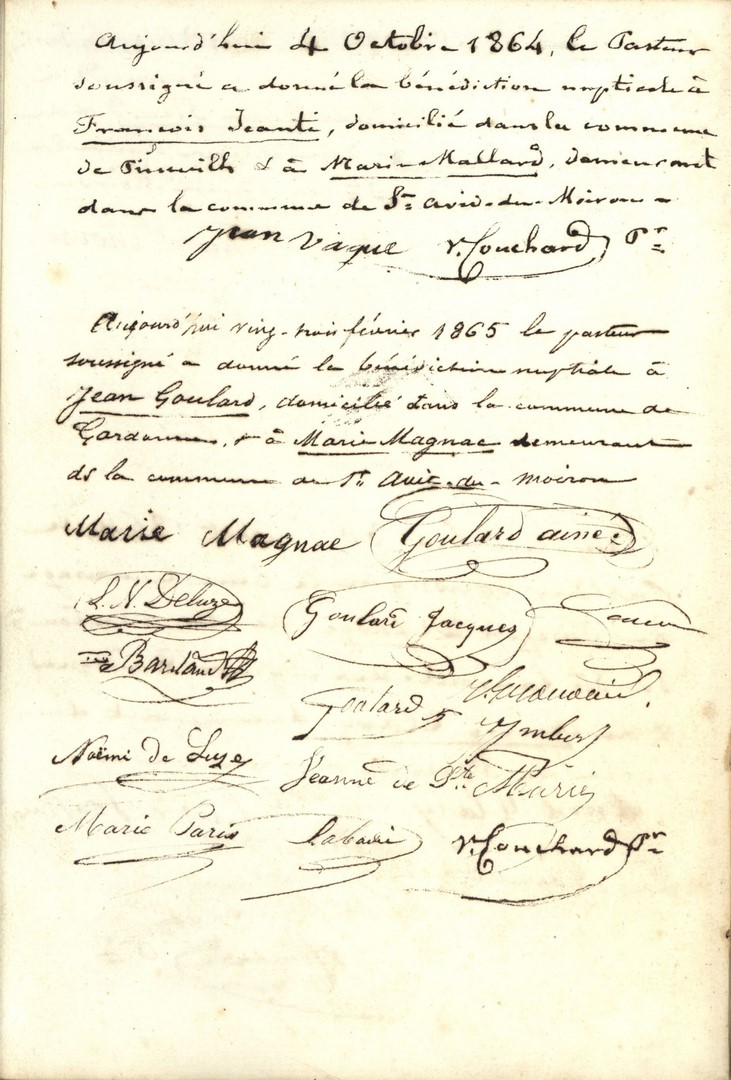 Aujourd'hui 4 Octobre 1864, le Pasteur
soussigné a donné la bénédiction nuptiale à
François Jeanti, domicilié dans la commune
de & à Marie Mallard, demeurant
dans la commune de St Avid-du-Moiron
Jean Vaque V. Couchard Pr
Aujourd'hui vingt-trois février 1865 le pasteur
soussigné a donné la bénédiction nuptiale à
Jean Goulard, domicilié dans la commune de
Gardonne, & à Marie Magnac demeurant
ds la commune de St Avit-du-moiron
Marie Magnac Goulard ainé
L. N. Deluze Goulard Jacques
Goulard
Imbert
Noëmi de Luze Jeanne de Ste Marie
Marie Paris Labadie V. Couchard Pr